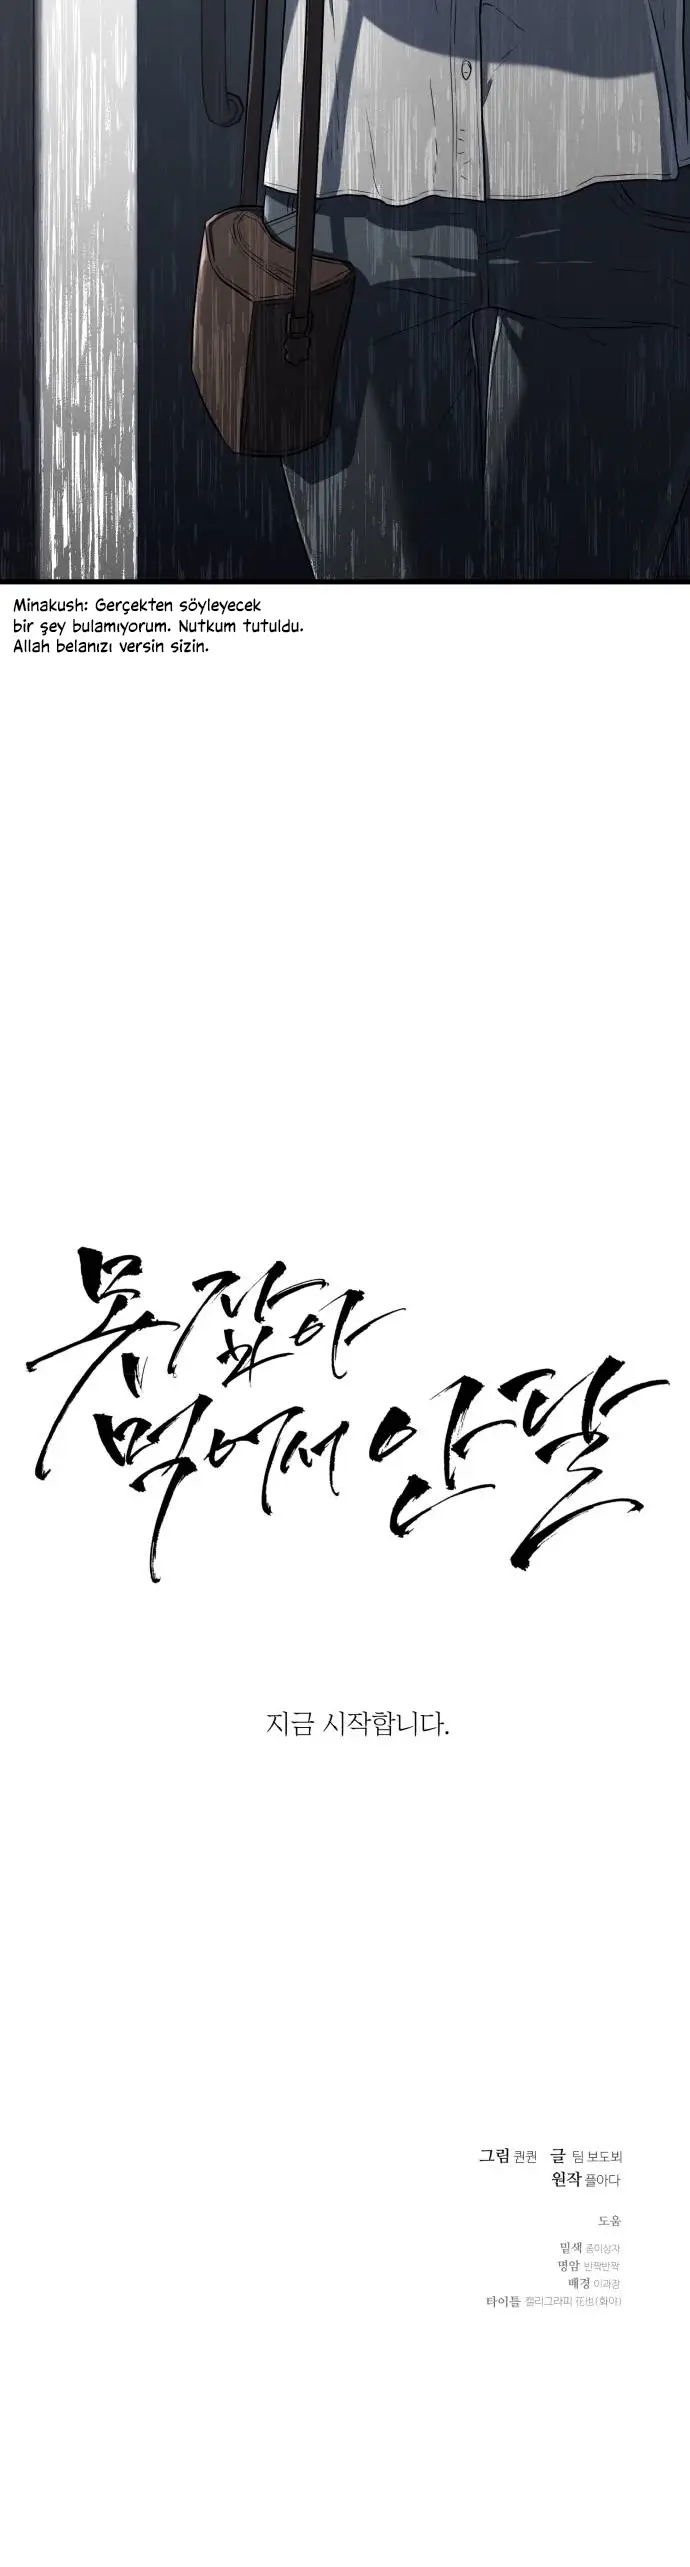 Minakush: Gerçekten söyleyecek
bir şey bulamıyorum. Nutkum tutuldu.
Allah belanızı versin sizin.
못 잡아
먹어서 안달
지금 시작합니다.
그림 퀀퀀 글 팀 보도뵈
원작 플아다
도움
밑색 종이상자
명암 반짝반짝
배경 이과장
타이틀 캘리그라피 花也(화야)